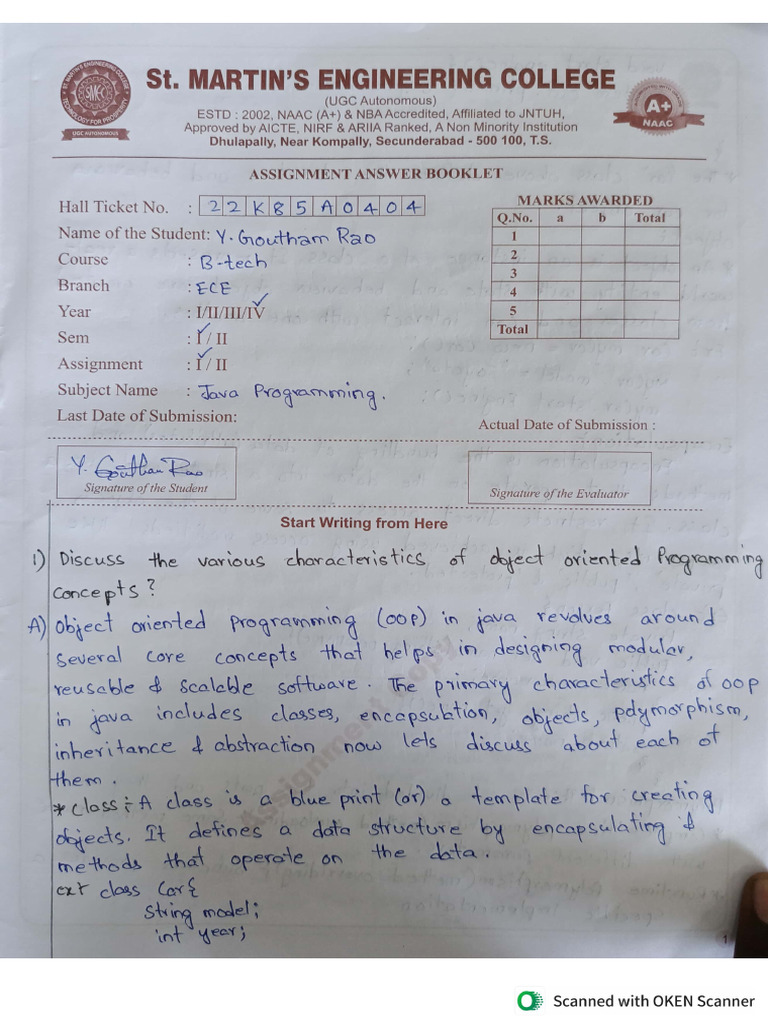 St. MARTIN'S ENGINEERING COLLEGE
(UGC Autonomous)
ESTD : 2002, NAAC (A+) & NBA Accredited, Affiliated to JNTUH,
Approved by AICTE, NIRF & ARIIA Ranked, A Non Minority Institution
Dhulapally, Near Kompally, Secunderabad - 500 100, T.S.
ST. MARTIN'S ENGINEERING COLLEGE
SMEC
TECHNOLOGY FOR PROSPERITY
UGC AUTONOMOUS
A+
NAAC
ASSIGNMENT ANSWER BOOKLET
Hall Ticket No. : 22K85A0404
Name of the Student: Y. Goutham Rao
Course : B-tech
Branch : ECE
Year : I/II/III/IV
Sem : I / II
Assignment : I / II
Subject Name : Java Programming.
Last Date of Submission:
MARKS AWARDED
Q.No. a b Total
1
2
3
4
5
Total
Actual Date of Submission :
Y. Goutham Rao
Signature of the Student
Signature of the Evaluator
Start Writing from Here
1) Discuss the various characteristics of object oriented Programming
concepts?
A) Object oriented programming (OOP) in java revolves around
several core concepts that helps in designing modular,
reusable & scalable software. The primary characteristics of OOP
in java includes classes, encapsulation, objects, polymorphism,
inheritance & abstraction now lets discuss about each of
them.
* Class:- A class is a blue print (or) a template for creating
objects. It defines a data structure by encapsulating &
methods that operate on the data.
ex:- class Car{
String model;
int year;
Assignment Copy
1
Scanned with OKEN Scanner